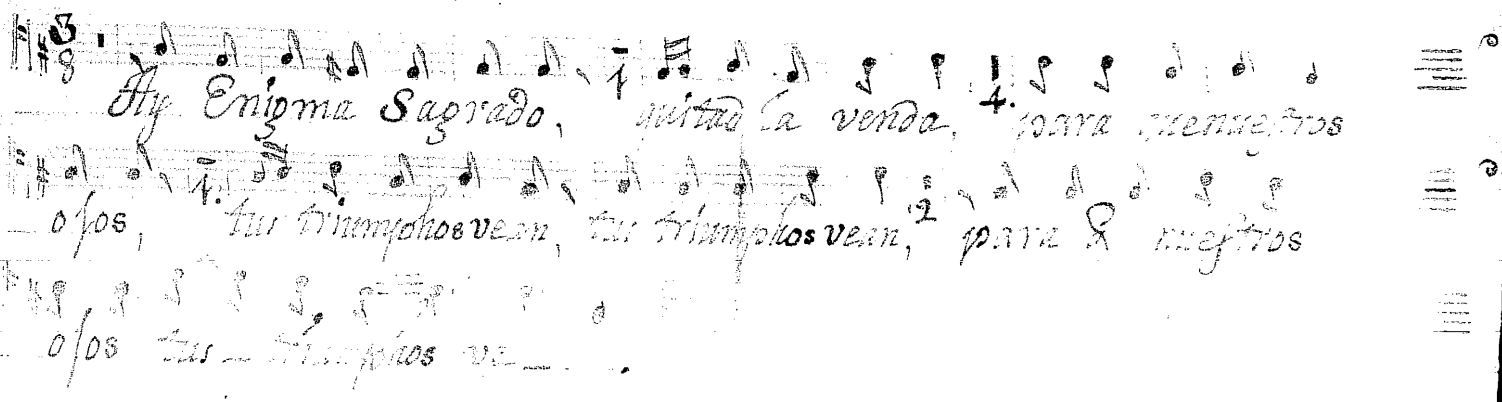 Ay Enigma Sagrado, quitad la venda, para quenuestros
ojos, tus triumphosvean, tus triumphosvean, para q nuestros
ojos tus triumphos ve